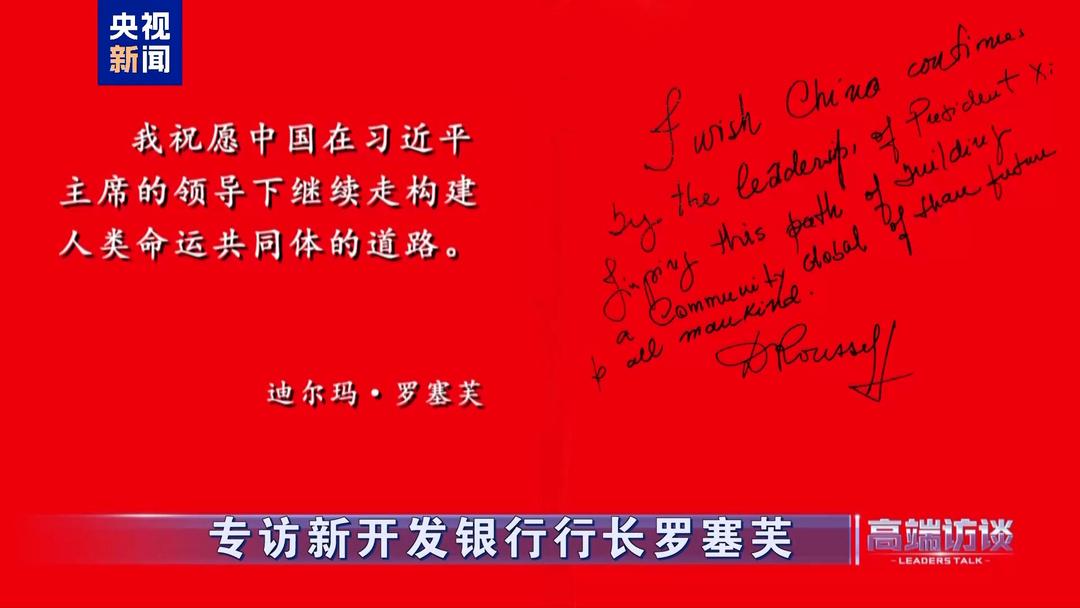 央视
新闻
我祝愿中国在习近平
主席的领导下继续走构建
人类命运共同体的道路。
迪尔玛·罗塞芙
I wish China continues
by the leadership, of President Xi
Jinping this path of building
a Community Global of share future
all mankind.
DRousseff
专访新开发银行行长罗塞芙
高端访谈
LEADERS TALK